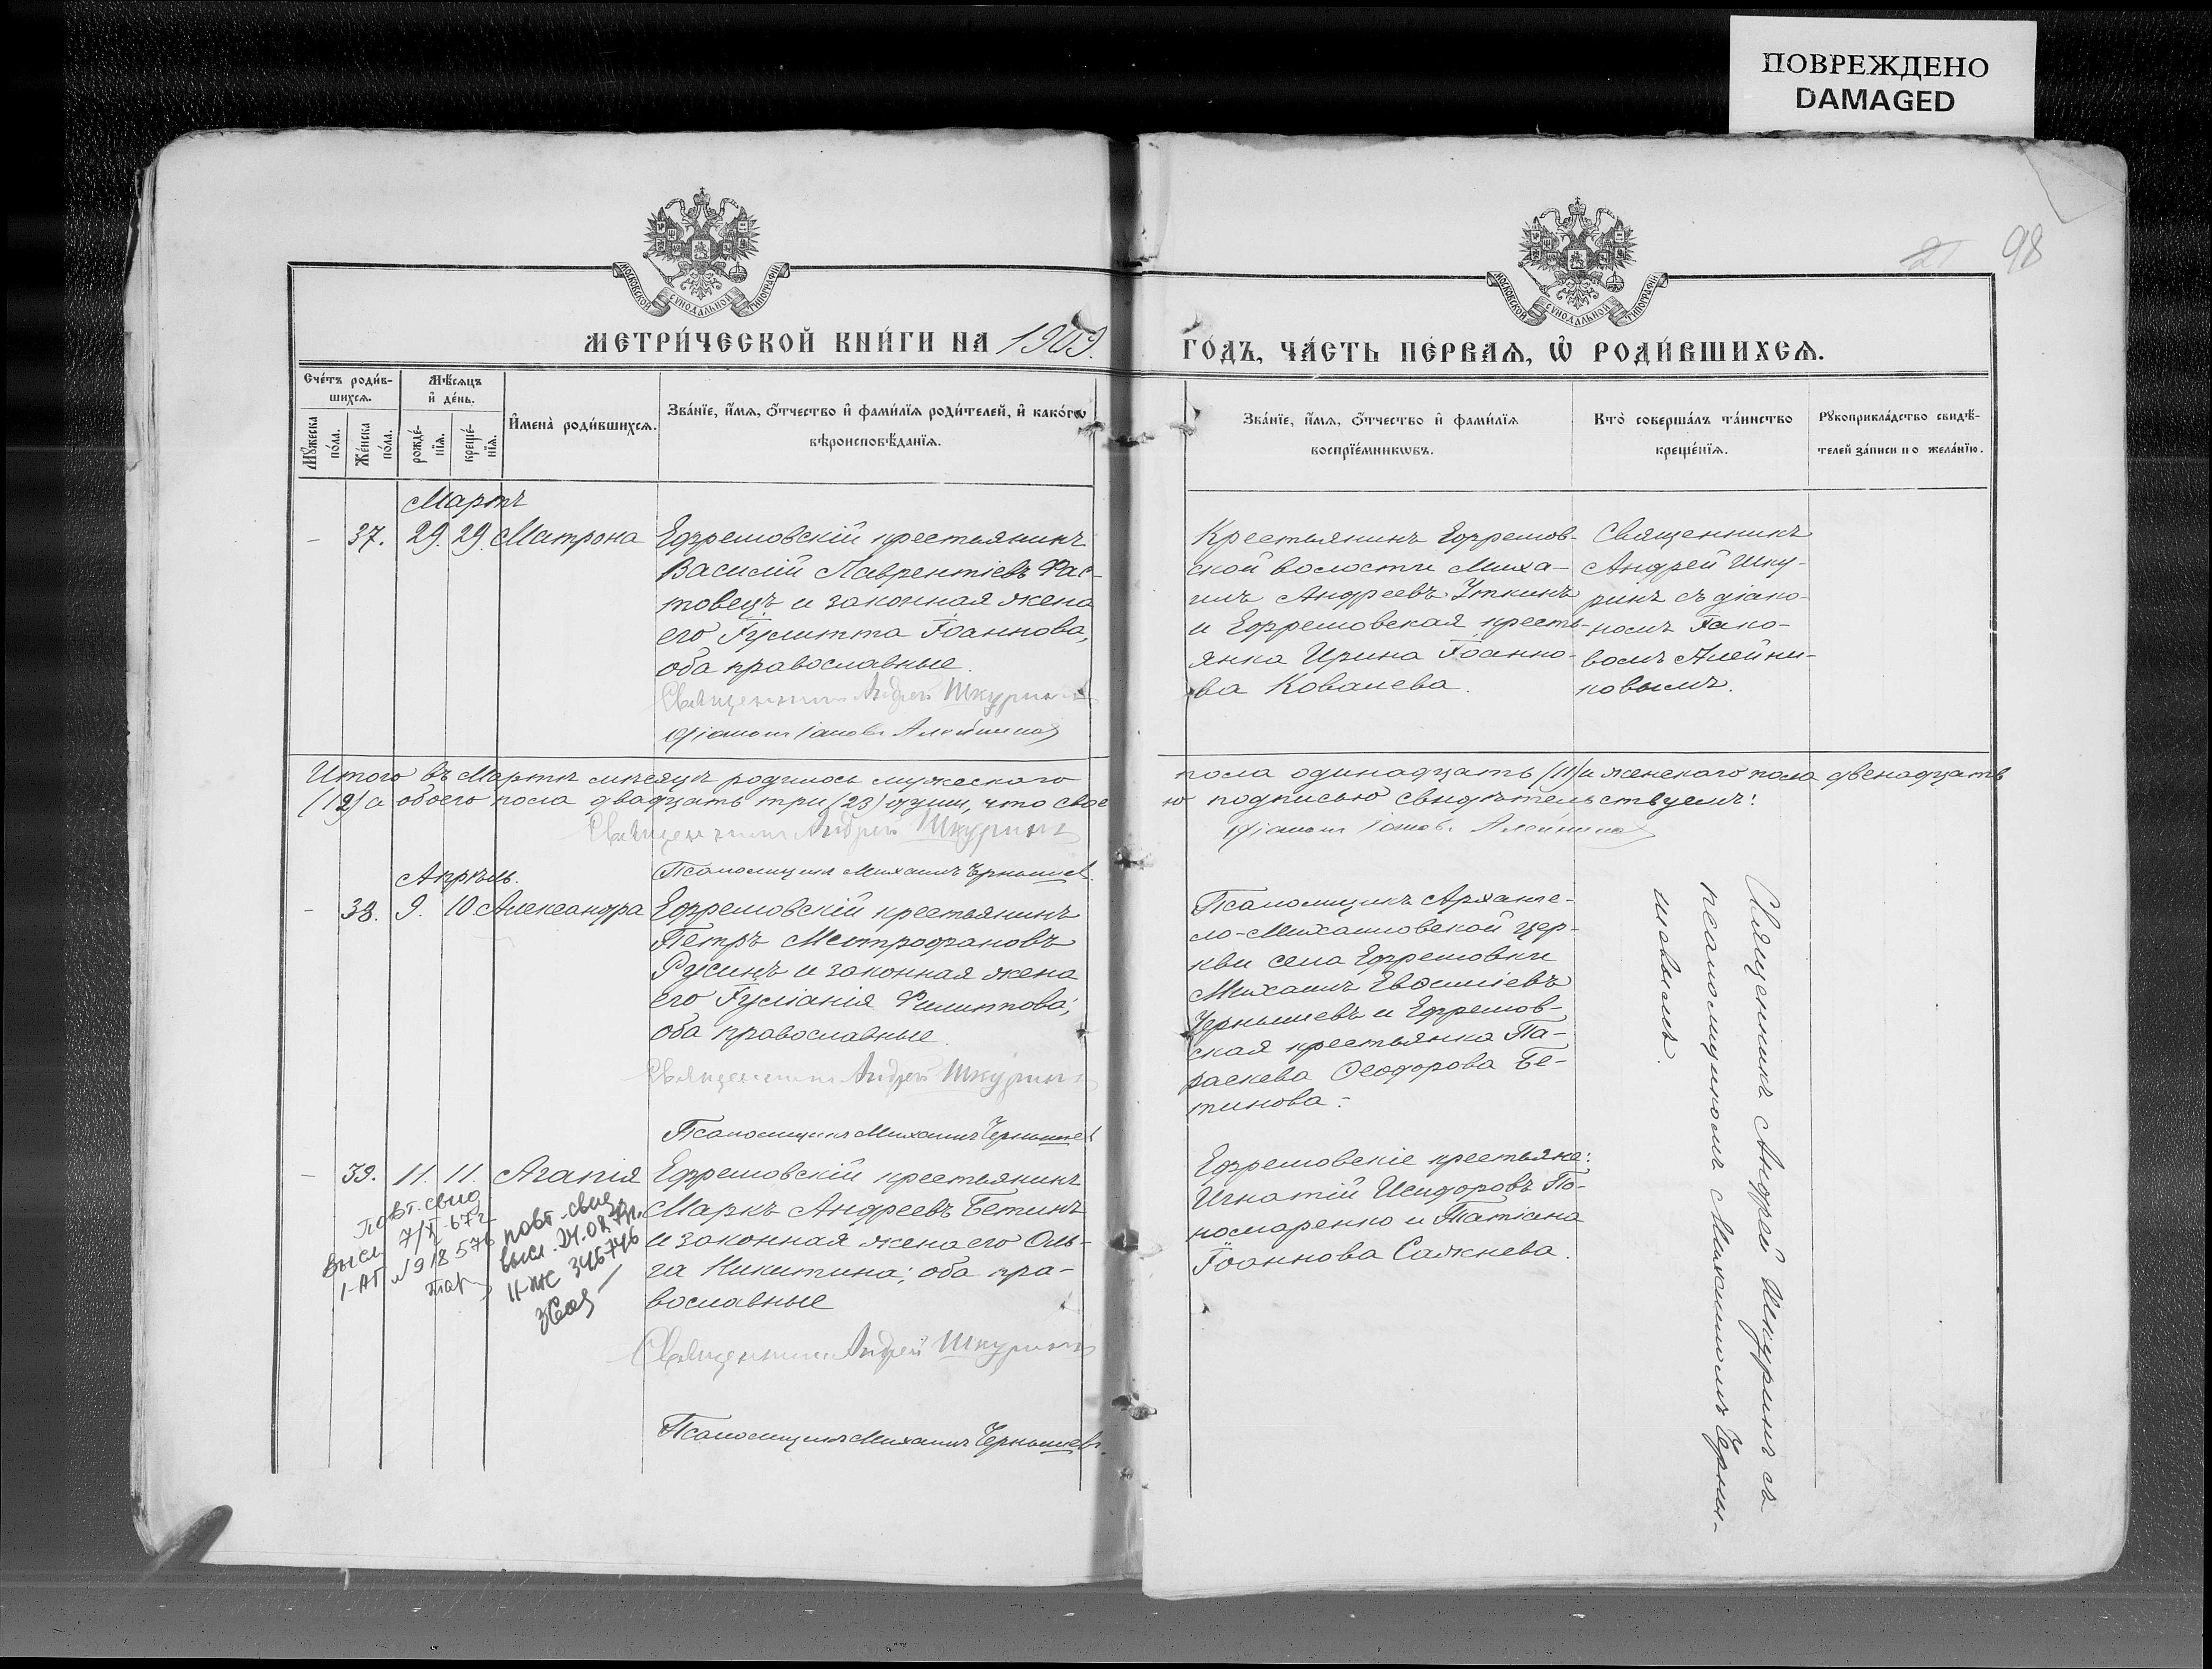 ПОВРЕЖДЕНО
DAMAGED
98
21
МОСКОВСКОЙ СѴНОДАЛЬНОЙ ТИПОГРАФІИ
МОСКОВСКОЙ СѴНОДАЛЬНОЙ ТИПОГРАФІИ
МЕТРИ́ЧЕСКОЙ КНИ́ГИ НА 1909.
ГО́ДЪ, ЧА́СТЬ ПЕ́РВАѦ, Ѡ҆ РОДИ́ВШИХСѦ.
Сче́тъ роди́в-
шихсѧ.
Мꙋ́жеска по́ла.
Же́нска по́ла.
Мѣ́сѧцъ
и҆ де́нь.
рожде́-
нїѧ.
креще́-
нїѧ.
И҆мена̀ роди́вшихсѧ.
Зва́нїе, и҆́мѧ, ѻ҆́тчество и҆ фами́лїѧ роди́телей, и҆ како́гѡ
вѣроисповѣ́данїѧ.
Зва́нїе, и҆́мѧ, ѻ҆́тчество и҆ фами́лїѧ
воспрїе́мникѡвъ.
Кто̀ соверша́лъ та́инство
креще́нїѧ.
Рꙋкоприкла́дство свидѣ́-
телей за́писи по жела́нїю.
Мартъ
- 37. 29. 29. Матрона
Ефремовскій крестьянинъ
Василій Лаврентіевъ Фас-
товецъ и законная жена
его Іулитта Іоаннова,
оба православные.
Священникъ Андрей Шкуринъ
Діаконъ Іаковъ Алейников
Крестьянинъ Ефремов-
ской волости Миха-
илъ Андреевъ Уткинъ
и Ефремовская кресть-
янка Ирина Іоанно-
ва Ковалева.
Священникъ
Андрей Шку-
ринъ съ діако-
номъ Іако-
вомъ Алейни-
ковымъ.
Итого въ Мартѣ мѣсяцѣ родилось мужескаго
пола одинадцать (11) и женскаго пола двенадцать
(12) а обоего пола двадцать три (23) души, что свое
ю подписью свидѣтельствуемъ:
Священникъ Андрей Шкуринъ
Діаконъ Іаковъ Алейников
Псаломщикъ Михаилъ Чернышев.
Апрѣль.
- 38. 9. 10. Александра
Ефремовскій крестьянинъ
Петръ Митрофановъ
Русинъ и законная жена
его Іуліанія Филиппова;
оба православные.
Священникъ Андрей Шкуринъ
Псаломщикъ Михаилъ Чернышев
Псаломщикъ Арханге-
ло-Михаиловской цер-
кви села Ефремовки
Михаилъ Евѳиміевъ
Чернышевъ и Ефремов-
ская крестьянка Па-
раскева Ѳеодорова Бе-
тинова.
Священникъ Андрей Шкуринъ съ
псаломщикомъ Михаиломъ Черны-
шевымъ.
- 39. 11. 11. Агапія
Ефремовскій крестьянинъ
Маркъ Андреевъ Бетинъ
и законная жена его Оль-
га Никитина; оба пра-
вославные
Священникъ Андрей Шкуринъ
Псаломщикъ Михаилъ Чернышевъ.
Ефремовскіе крестьяне:
Игнатій Исидоровъ По-
номаренко и Татіана
Іоаннова Сажнева.
Повт. свид
высл 7/X-67г
I-АП №918576
повт. свид
высл. 24.02.79г.
II-ЖС 345746